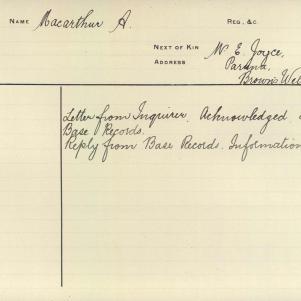 NAME Macarthur A. REG. &C.
NEXT OF KIN W. E. Joyce,
ADDRESS Paruna,
Brown's Wel
Letter from Inquirer. Acknowledged
Base Records.
Reply from Base Records. Information